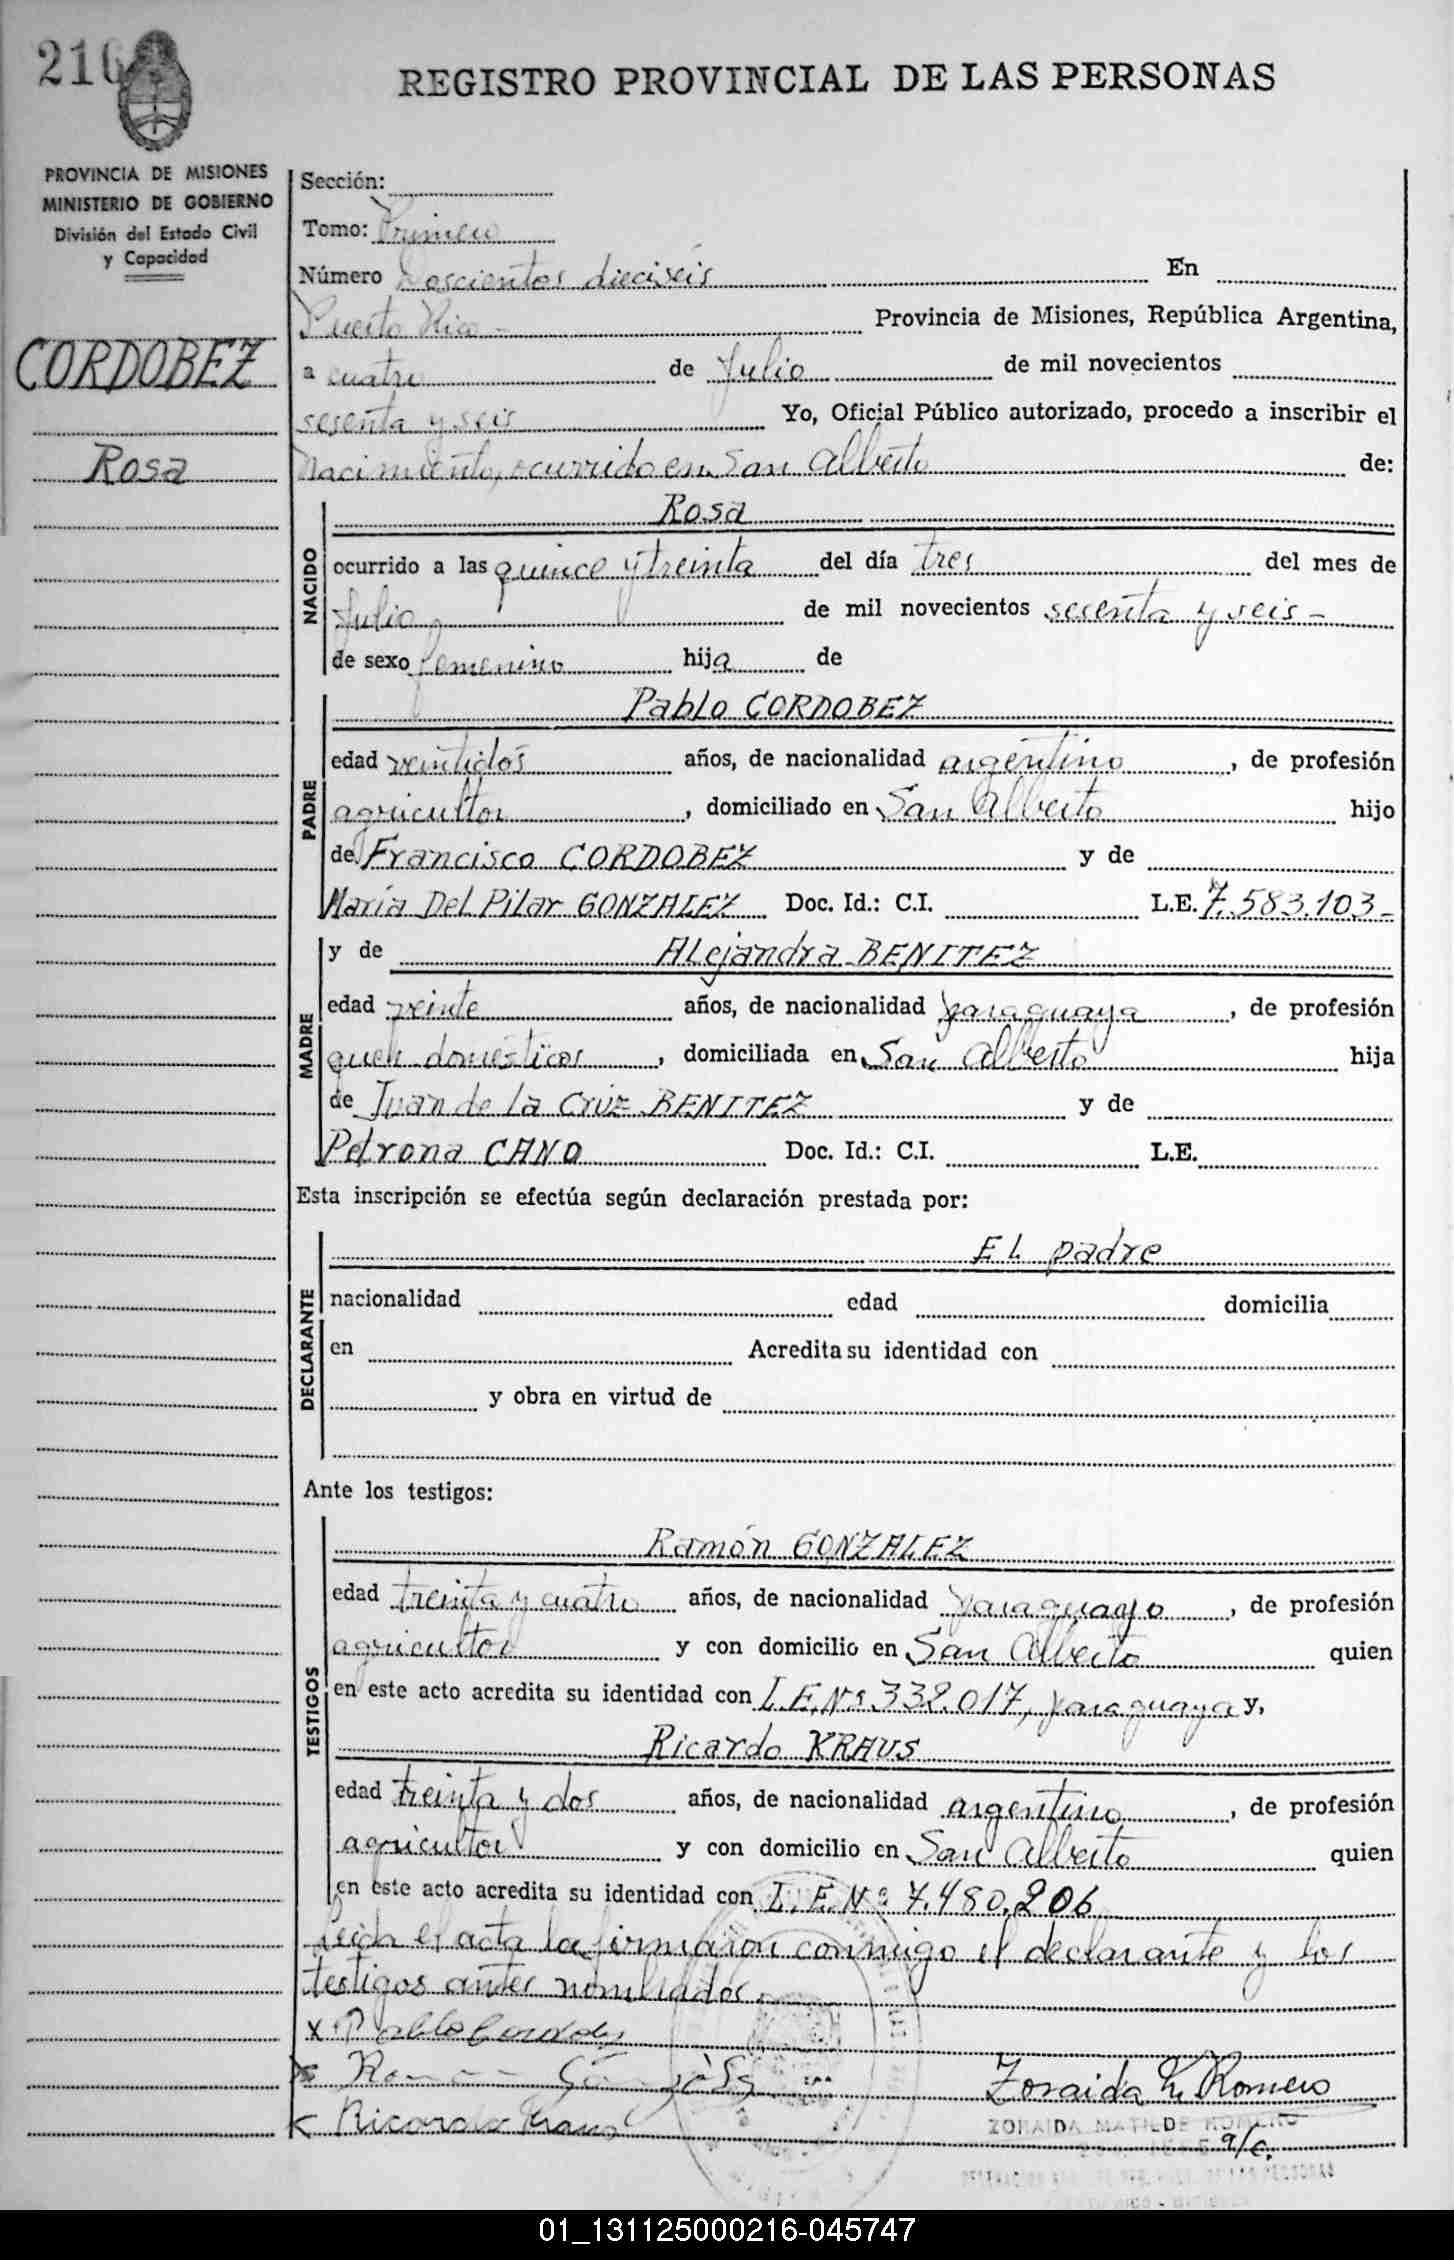 216
REGISTRO PROVINCIAL DE LAS PERSONAS
PROVINCIA DE MISIONES
MINISTERIO DE GOBIERNO
División del Estado Civil
y Capacidad
CORDOBEZ
Rosa
Sección:
Tomo: Primero
Número Doscientos dieciseis En
Puerto Rico - Provincia de Misiones, República Argentina,
a cuatro de Julio de mil novecientos
sesenta y seis Yo, Oficial Público autorizado, procedo a inscribir el
nacimiento, ocurrido en San Alberto de:
NACIDO
Rosa
ocurrido a las quince y treinta del día tres del mes de
Julio de mil novecientos sesenta y seis -
de sexo femenino hija de
PADRE
Pablo CORDOBEZ
edad veintidós años, de nacionalidad argentino, de profesión
agricultor, domiciliado en San Alberto hijo
de Francisco CORDOBEZ y de
María Del Pilar GONZALEZ Doc. Id.: C.I. L.E. 7.583.103-
MADRE
y de Alejandra BENITEZ
edad veinte años, de nacionalidad paraguaya, de profesión
queh. domésticos, domiciliada en San Alberto hija
de Juan de la Cruz BENITEZ y de
Petrona CANO Doc. Id.: C.I. L.E.
Esta inscripción se efectúa según declaración prestada por:
DECLARANTE
El padre
nacionalidad edad domicilia
en Acredita su identidad con
y obra en virtud de
Ante los testigos:
TESTIGOS
Ramón GONZALEZ
edad treinta y cuatro años, de nacionalidad paraguayo, de profesión
agricultor y con domicilio en San Alberto quien
en este acto acredita su identidad con I.E.Nº 332.017, paraguaya y,
Ricardo KRAUS
edad treinta y dos años, de nacionalidad argentino, de profesión
agricultor y con domicilio en San Alberto quien
en este acto acredita su identidad con L.E.Nº 7.480.206
Leída el acta la firmaron conmigo el declarante y los
testigos antes nombrados.
x Pablo Cordobez
x Ramon González
x Ricardo Kraus
Zoraida M. Romero
ZORAIDA MATILDE ROMERO
a/c.
01_131125000216-045747